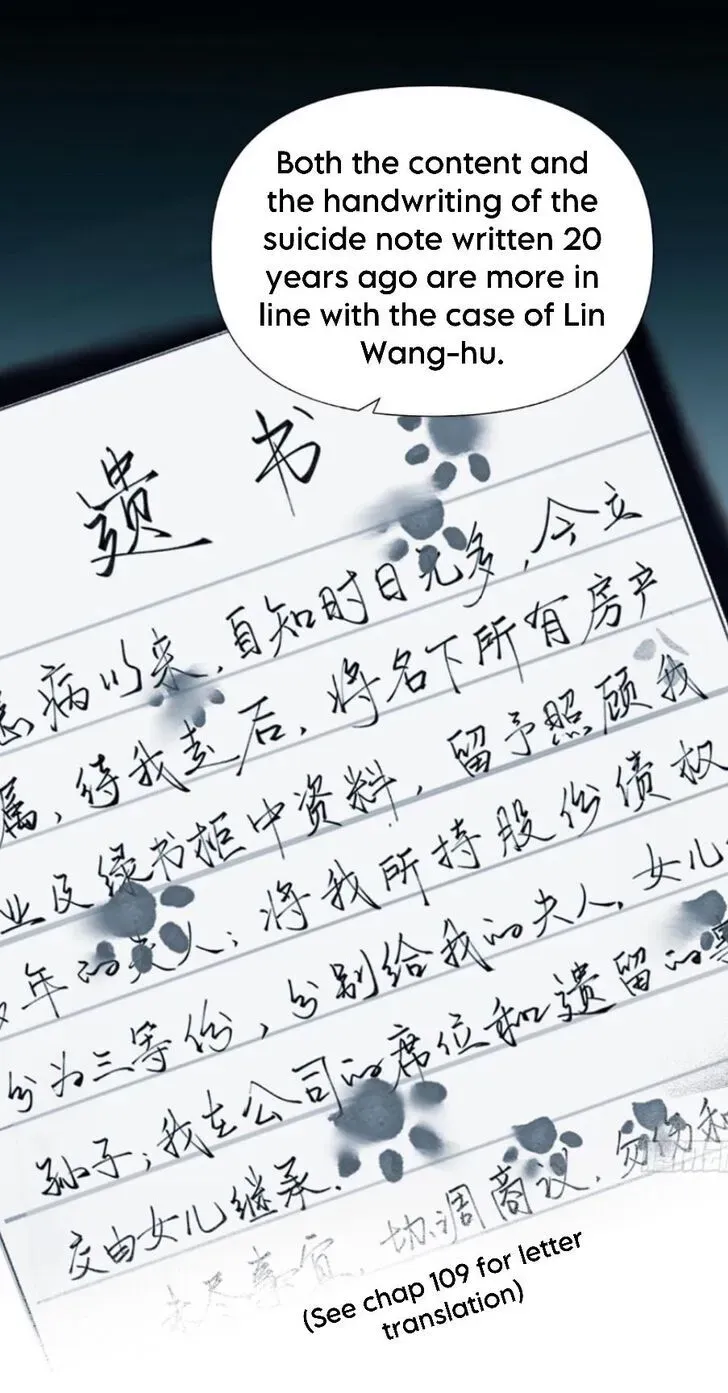 Both the content and
the handwriting of the
suicide note written 20
years ago are more in
line with the case of Lin
Wang-hu.
遗书
病以来，自知时日无多，今立
属，待我走后，将名下所有房产
业及绿书柜中资料，留予照顾我
年的夫人；将我所持股份债权
分为三等份，分别给我的夫人，女儿
孙子；我在公司的席位和遗留的事
交由女儿继承。
未尽事宜，协调商议，勿伤和
(See chap 109 for letter
translation)